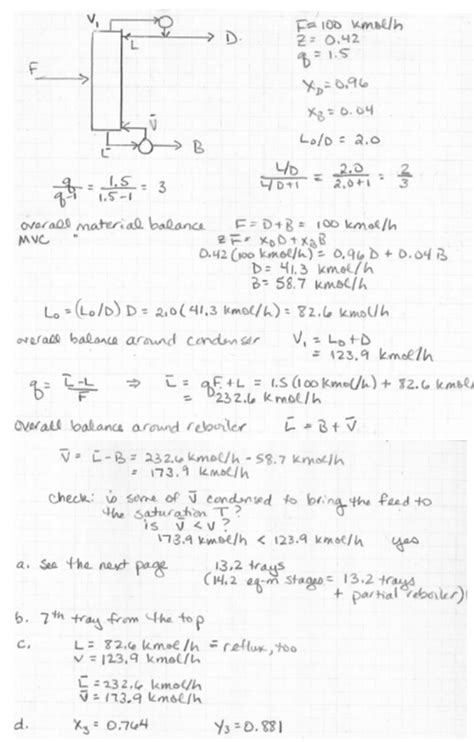 V₁
L
D
F
V̄
L̄
B
F = 100 kmol/h
Z = 0.42
q = 1.5
X_D = 0.96
X_B = 0.04
L₀/D = 2.0
q/q-1 = 1.5/1.5-1 = 3
L/D/L/D+1 = 2.0/2.0+1 = 2/3
overall material balance F = D+B = 100 kmol/h
MVC " zF = X_D D + X_B B
0.42(100 kmol/h) = 0.96 D + 0.04 B
D = 41.3 kmol/h
B = 58.7 kmol/h
L₀ = (L₀/D) D = 2.0(41.3 kmol/h) = 82.6 kmol/h
overall balance around condenser V₁ = L₀+D
= 123.9 kmol/h
q = L̄-L/F ⇒ L̄ = qF+L = 1.5(100 kmol/h) + 82.6 kmol
= 232.6 kmol/h
overall balance around reboiler L̄ = B + V̄
V̄ = L̄-B = 232.6 kmol/h - 58.7 kmol/h
= 173.9 kmol/h
check: is some of V̄ condensed to bring the feed to
the saturation T?
is V < V̄?
173.9 kmol/h < 123.9 kmol/h yes
a. see the next page 13.2 trays
(14.2 eq-m stages = 13.2 trays
+ partial reboiler)
b. 7th tray from the top
c. L = 82.6 kmol/h = reflux, too
V = 123.9 kmol/h
L̄ = 232.6 kmol/h
V̄ = 173.9 kmol/h
d. X₃ = 0.764 Y₃ = 0.881